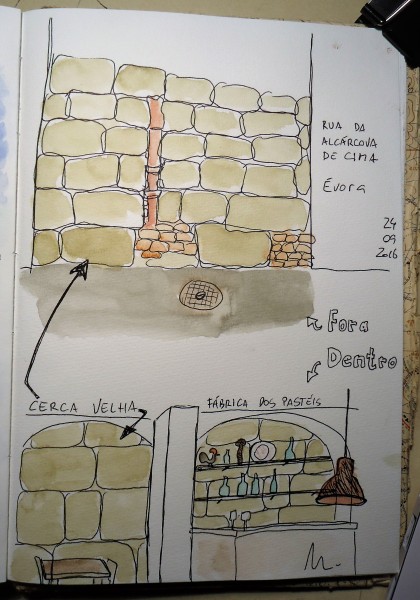 RUA DA
ALCÁRCOVA
DE CIMA
Évora
24
09
2016
Fora
Dentro
CERCA VELHA
FÁBRICA DOS PASTÉIS